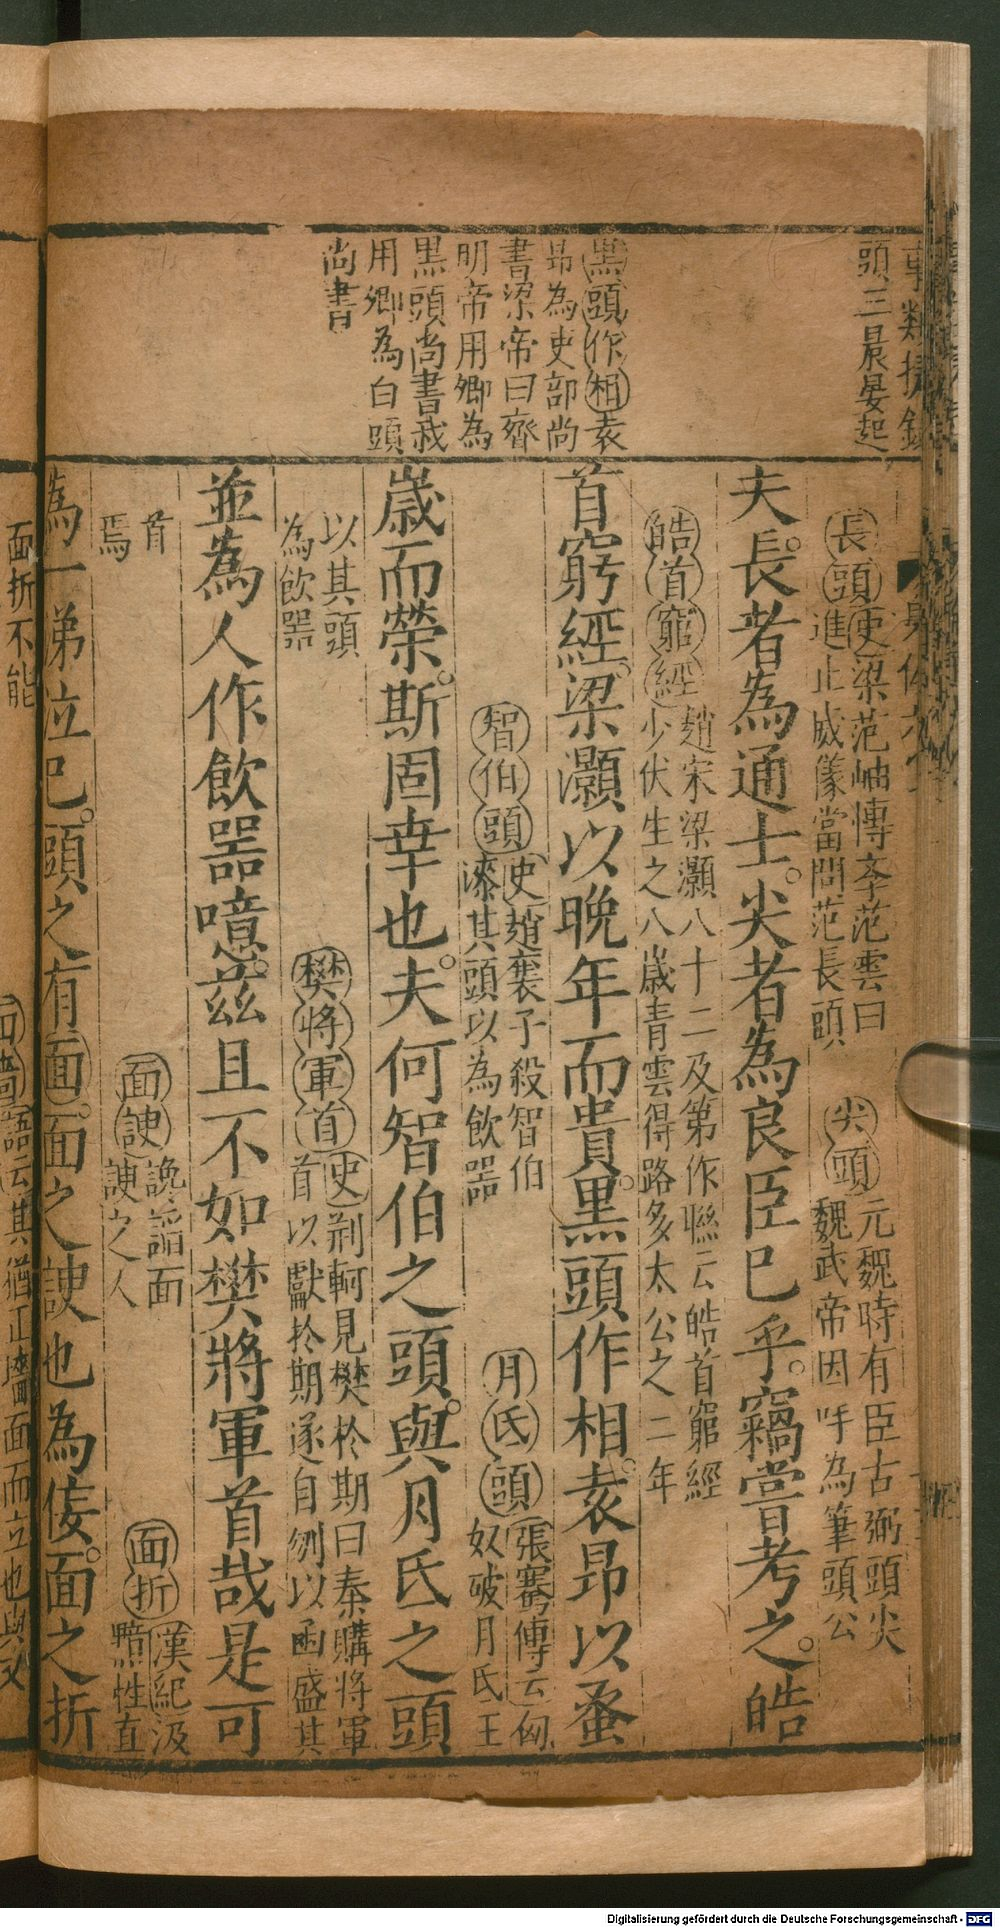 頭三晨晏起
黒頭作相袁
昻為吏部尚
書梁帝曰齊
明帝用卿為
黒頭尚書我
用卿為白頭
尚書
長頭史梁范岫傳奉范雲曰
進止威儀當問范長頭
尖頭元魏時有臣古弼頭尖
魏武帝因呼為筆頭公
夫長者為通士。尖者為良臣已乎。竊嘗考之。皓
皓首窮經趙宋梁灝八十二及第作聯云皓首窮經
少伏生之八歲青雲得路多太公之二年
首窮經。梁灝以晚年而貴。黒頭作相。袁昻以蚤
智伯頭史趙襄子殺智伯
漆其頭以為飲器
月氏頭張騫傳云匈
奴破月氏王
歲而榮。斯固幸也。夫何智伯之頭。與月氏之頭
以其頭
為飲器
樊將軍首史荆軻見樊於期曰秦購將軍
首以獻於期遂自刎以函盛其
並為人作飲器噫。茲且不如樊將軍首哉是可
首
焉
面諛讒謟面
諛之人
面折漢紀汲
黯性直
為一涕泣已。頭之有面。面之諛也為佞。面之折
面折不能
語云其猶正墻面而立也與